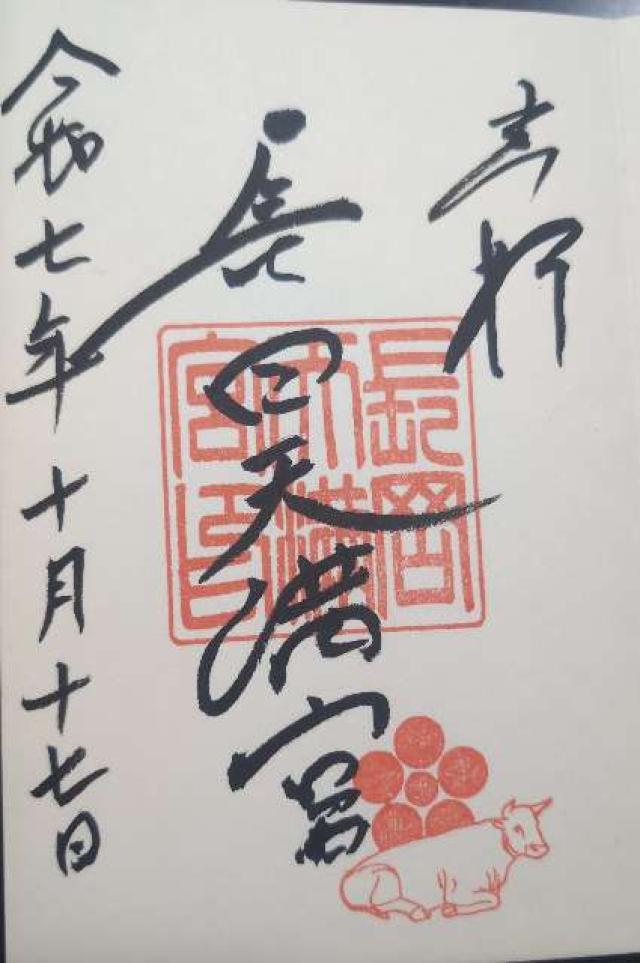 奉拝
長岡天満宮
長岡天満宮印
令和七年十月十七日